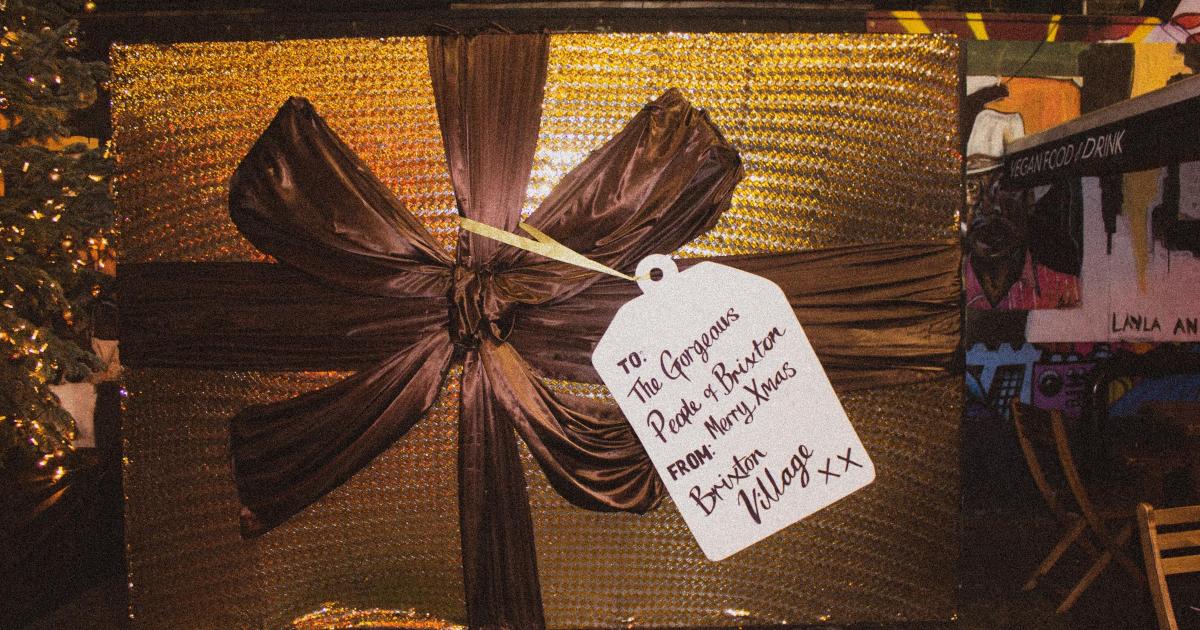 TO:
The Gorgeous
People of Brixton
Merry Xmas
FROM:
Brixton
Village xx
VEGAN FOOD / DRINK
LAYLA AN